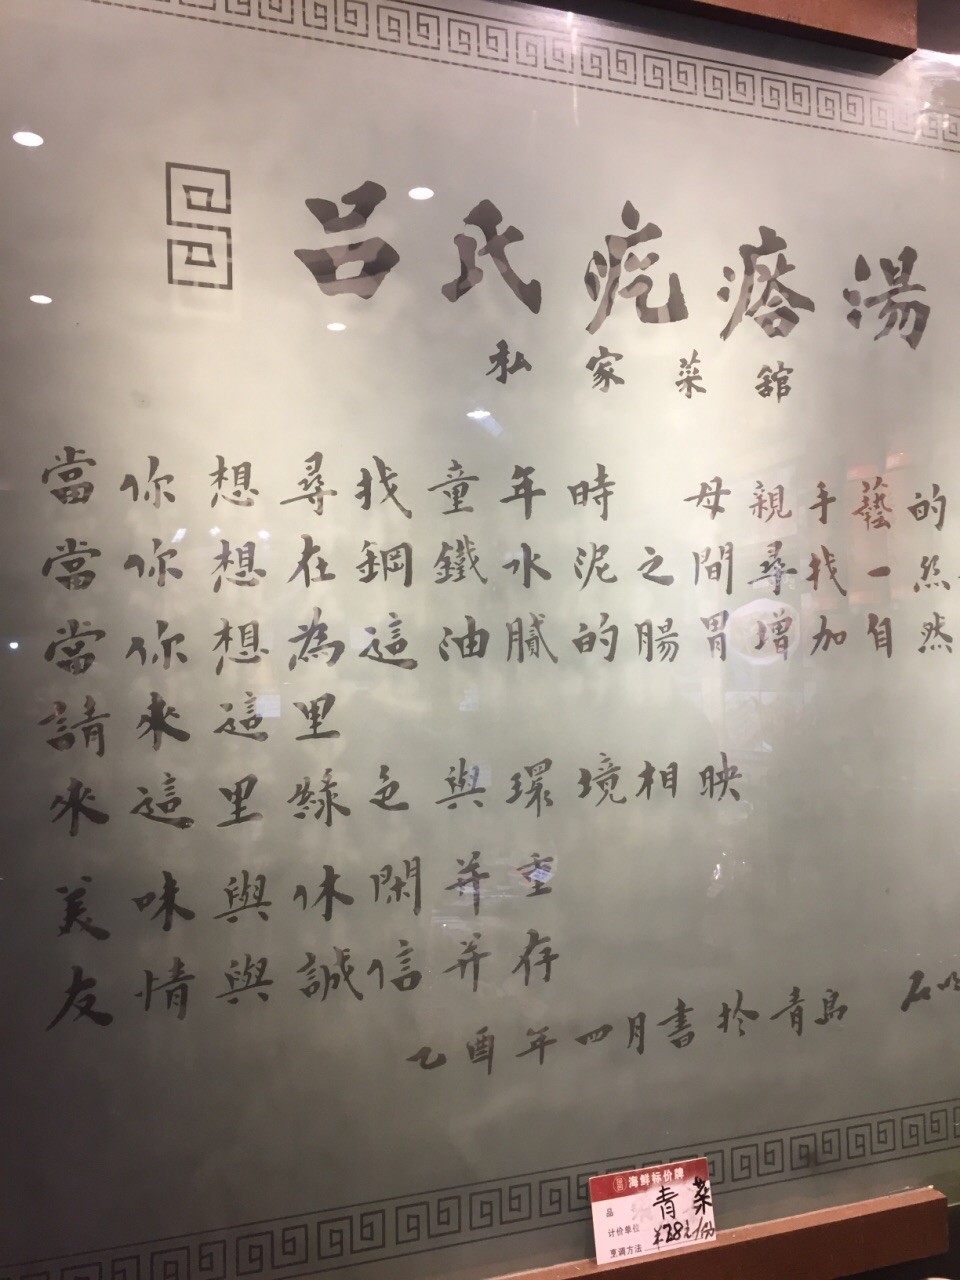 吕氏疙瘩湯
私家菜舘
當你想尋找童年時 母親手藝的
當你想在鋼鐵水泥之間尋找一絲
當你想為這油膩的腸胃增加自然
請來這里
來這里綠色與環境相映
美味與休閑并重
友情與誠信并存
乙酉年四月書於青島 石
海鲜标价牌
品 青菜
计价单位 ¥38元/份
烹调方法